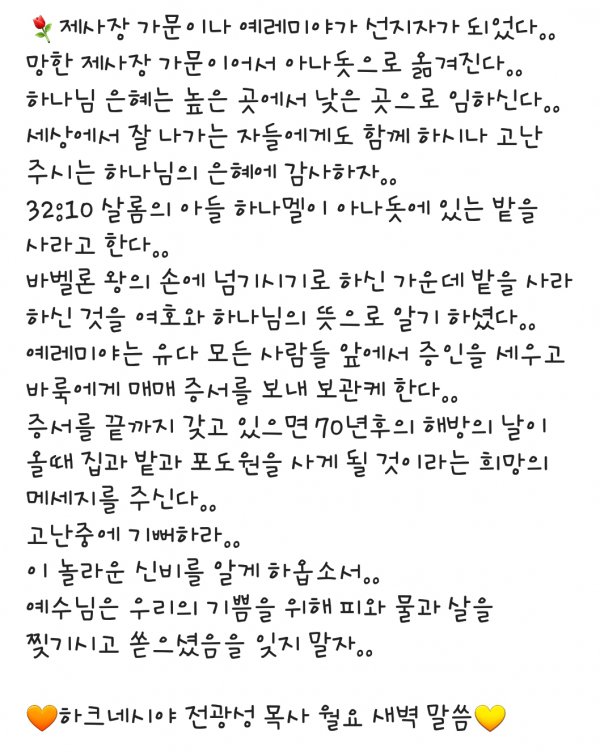 🌹제사장 가문이나 예레미야가 선지자가 되었다。。
망한 제사장 가문이어서 아나돗으로 옮겨진다。。
하나님 은혜는 높은 곳에서 낮은 곳으로 임하신다。。
세상에서 잘 나가는 자들에게도 함께 하시나 고난
주시는 하나님의 은혜에 감사하자。。
32:10 살롬의 아들 하나멜이 아나돗에 있는 밭을
사라고 한다。。
바벨론 왕의 손에 넘기시기로 하신 가운데 밭을 사라
하신 것을 여호와 하나님의 뜻으로 알기 하셨다。。
예레미야는 유다 모든 사람들 앞에서 증인을 세우고
바룩에게 매매 증서를 보내 보관케 한다。。
증서를 끝까지 갖고 있으면 70년후의 해방의 날이
올때 집과 밭과 포도원을 사게 될 것이라는 희망의
메세지를 주신다。。
고난중에 기뻐하라。。
이 놀라운 신비를 알게 하옵소서。。
예수님은 우리의 기쁨을 위해 피와 물과 살을
찢기시고 쏟으셨음을 잊지 말자。。
🧡하크네시야 전광성 목사 월요 새벽 말씀💛